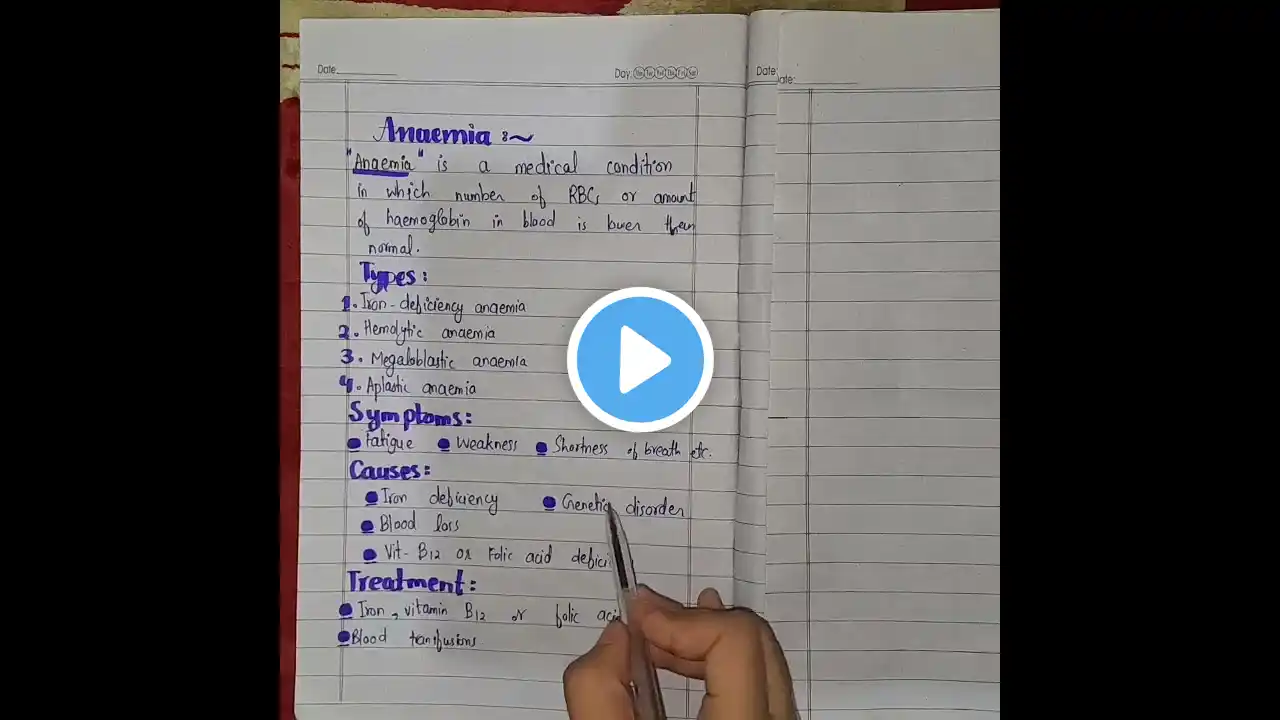 Date
Day:
Date:
ate:
Anaemia :~
"Anaemia" is a medical condition
in which number of RBCs or amount
of haemoglobin in blood is lower then
normal.
Types:
1. Iron-deficiency anaemia
2. Hemolytic anaemia
3. Megaloblastic anaemia
4. Aplastic anaemia
Symptoms:
Fatigue Weakness Shortness of breath etc.
Causes:
Iron deficiency Genetic disorder
Blood loss
Vit-B12 or Folic acid defici
Treatment:
Iron, vitamin B12 or folic acid
Blood transfusions